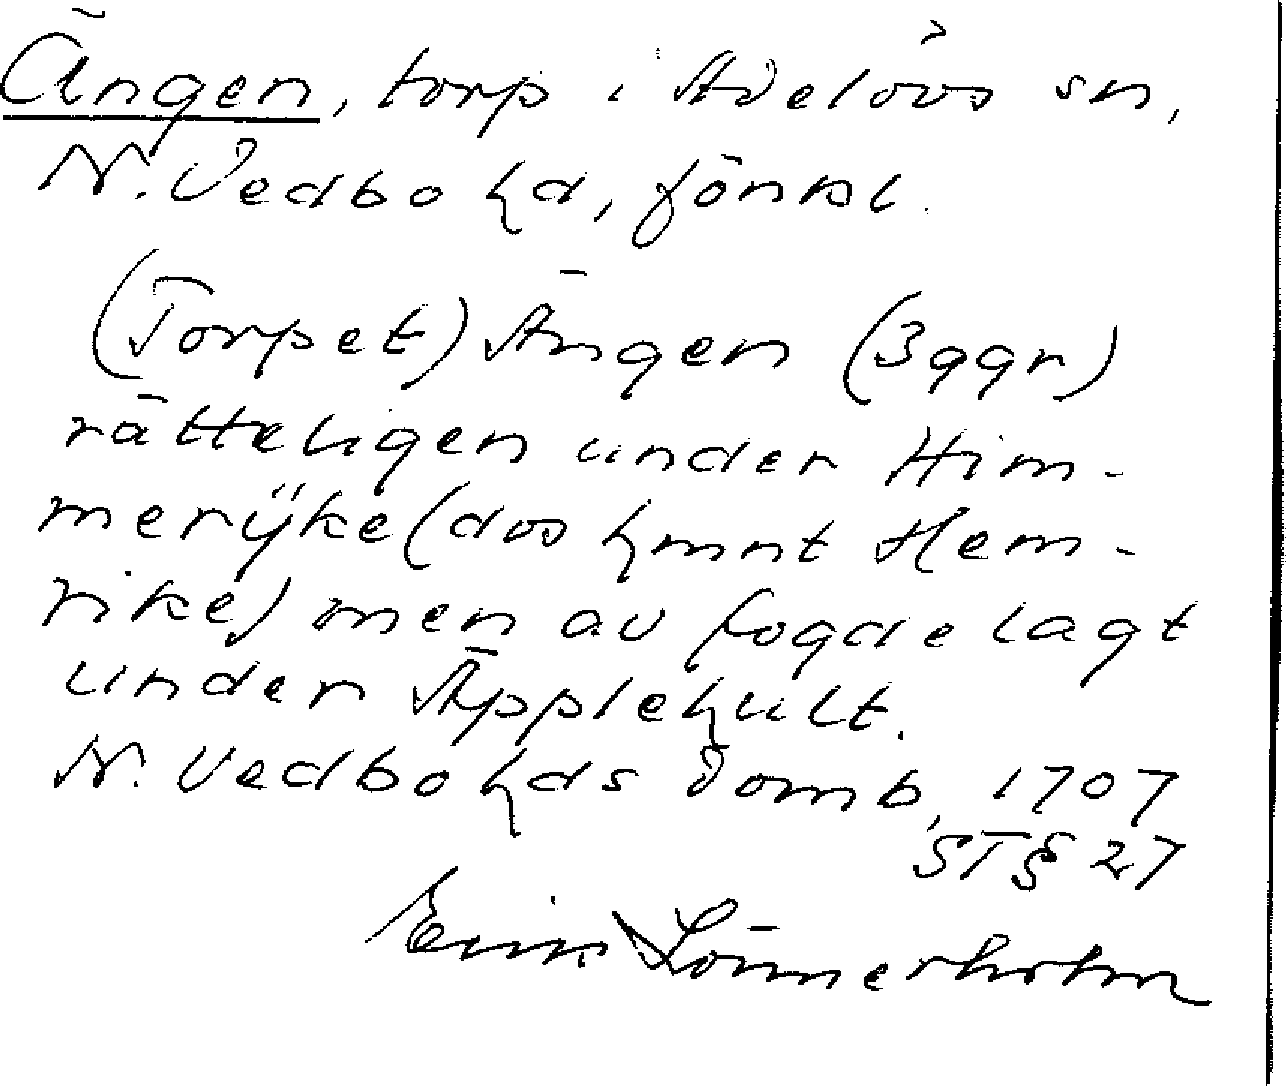 Ängen, torp i Adelövs sn,
N. Vedbo hd, Jönkl.
(Torpet) Ängen (3 ggr)
rätteligen under Him-
merÿke (dvs hmnt Hem-
rike) men av fogde lagt
under Äpplehult.
N. Vedbo hds domb, 1707
ST § 27
Einar Lönnerholm